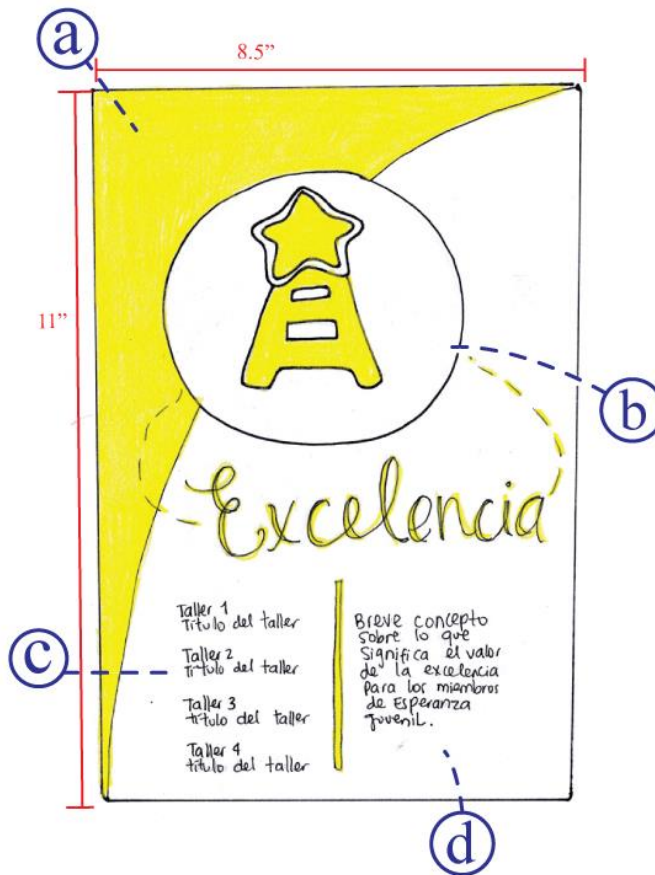 a
8.5”
11”
b
Excelencia
Taller 1
Título del taller
Taller 2
Título del taller
Taller 3
título del taller
Taller 4
título del taller
c
Breve concepto
sobre lo que
significa el valor
de la excelencia
para los miembros
de Esperanza
Juvenil.
d